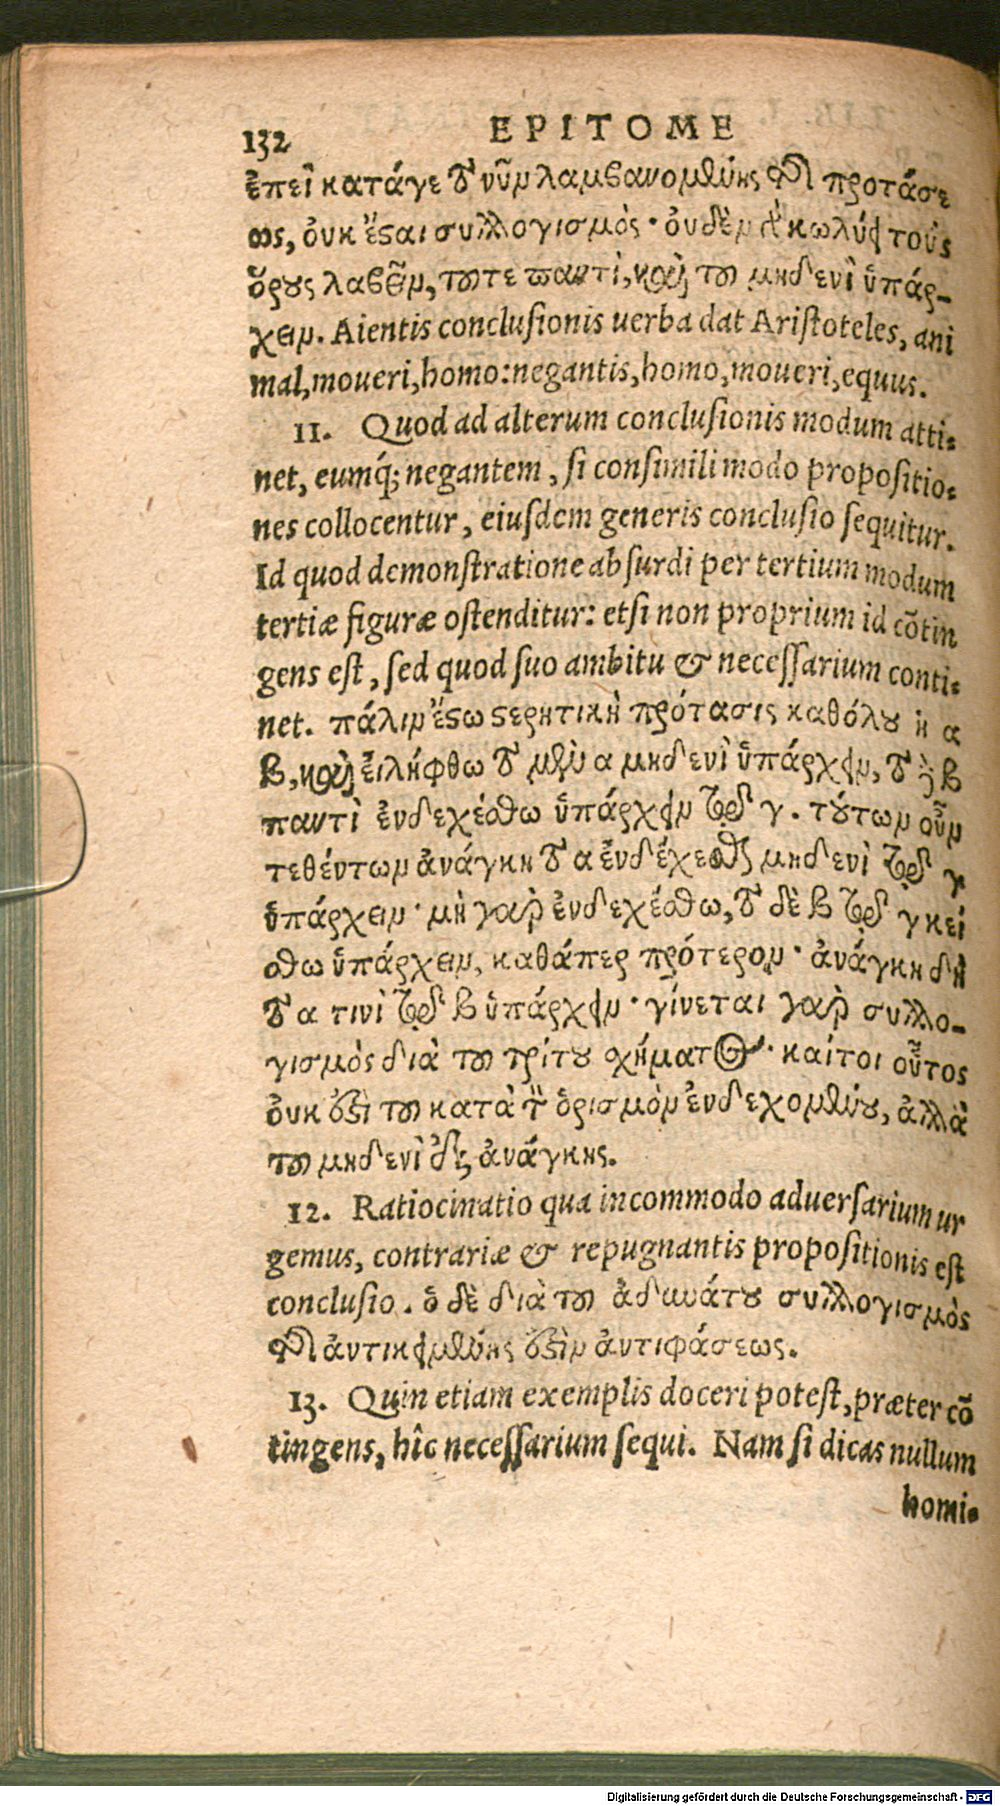 132 EPITOME
ἐπεὶ κατάγε τὸ νῦν λαμβανομένης τῆς προτάσε
ως, οὐκ ἔσαι συλλογισμὸς· οὐδὲν κωλύει τοὺς
ὅρους λαβεῖν, τοῦ τε παντὶ, καὶ τοῦ μηδενὶ ὑπάρ-
χειν. Aientis conclusionis uerba dat Aristoteles, ani
mal, moueri, homo: negantis, homo, moueri, equus.
11. Quod ad alterum conclusionis modum atti-
net, eumq́; negantem, si consimili modo propositio-
nes collocentur, eiusdem generis conclusio sequitur.
Id quod demonstratione absurdi per tertium modum
tertiæ figuræ ostenditur: etsi non proprium id cõtin
gens est, sed quod suo ambitu & necessarium conti-
net. πάλιν ἔστω στερητικὴ πρότασις καθόλου ἡ α
β, καὶ εἰλήφθω τὸ μὲν α μηδενὶ ὑπάρχειν, τὸ δὲ β
παντὶ ἐνδεχέσθω ὑπάρχειν τῷ γ. τούτων οὖν
τεθέντων ἀνάγκη τὸ α ἐνδέχεσθαι μηδενὶ τῷ γ
ὑπάρχειν· μὴ γὰρ ἐνδεχέσθω, τὸ δὲ β τῷ γ κεί
σθω ὑπάρχειν, καθάπερ πρότερον· ἀνάγκη δὴ
τὸ α τινὶ τῷ β ὑπάρχειν· γίνεται γὰρ συλλο-
γισμὸς διὰ τοῦ τρίτου σχήματος· καίτοι οὗτος
οὐκ ἔστι τοῦ κατὰ τὸν ὁρισμὸν ἐνδεχομένου, ἀλλὰ
τοῦ μηδενὶ ἐξ ἀνάγκης.
12. Ratiocinatio qua incommodo aduersarium ur
gemus, contrariæ & repugnantis propositionis est
conclusio. ὁ δὲ διὰ τοῦ ἀδυνάτου συλλογισμὸς
τῆς ἀντικειμένης ἐστὶν ἀντιφάσεως.
13. Quin etiam exemplis doceri potest, præter cõ
tingens, hîc necessarium sequi. Nam si dicas nullum
homi-
Digitalisierung gefördert durch die Deutsche Forschungsgemeinschaft - DFG